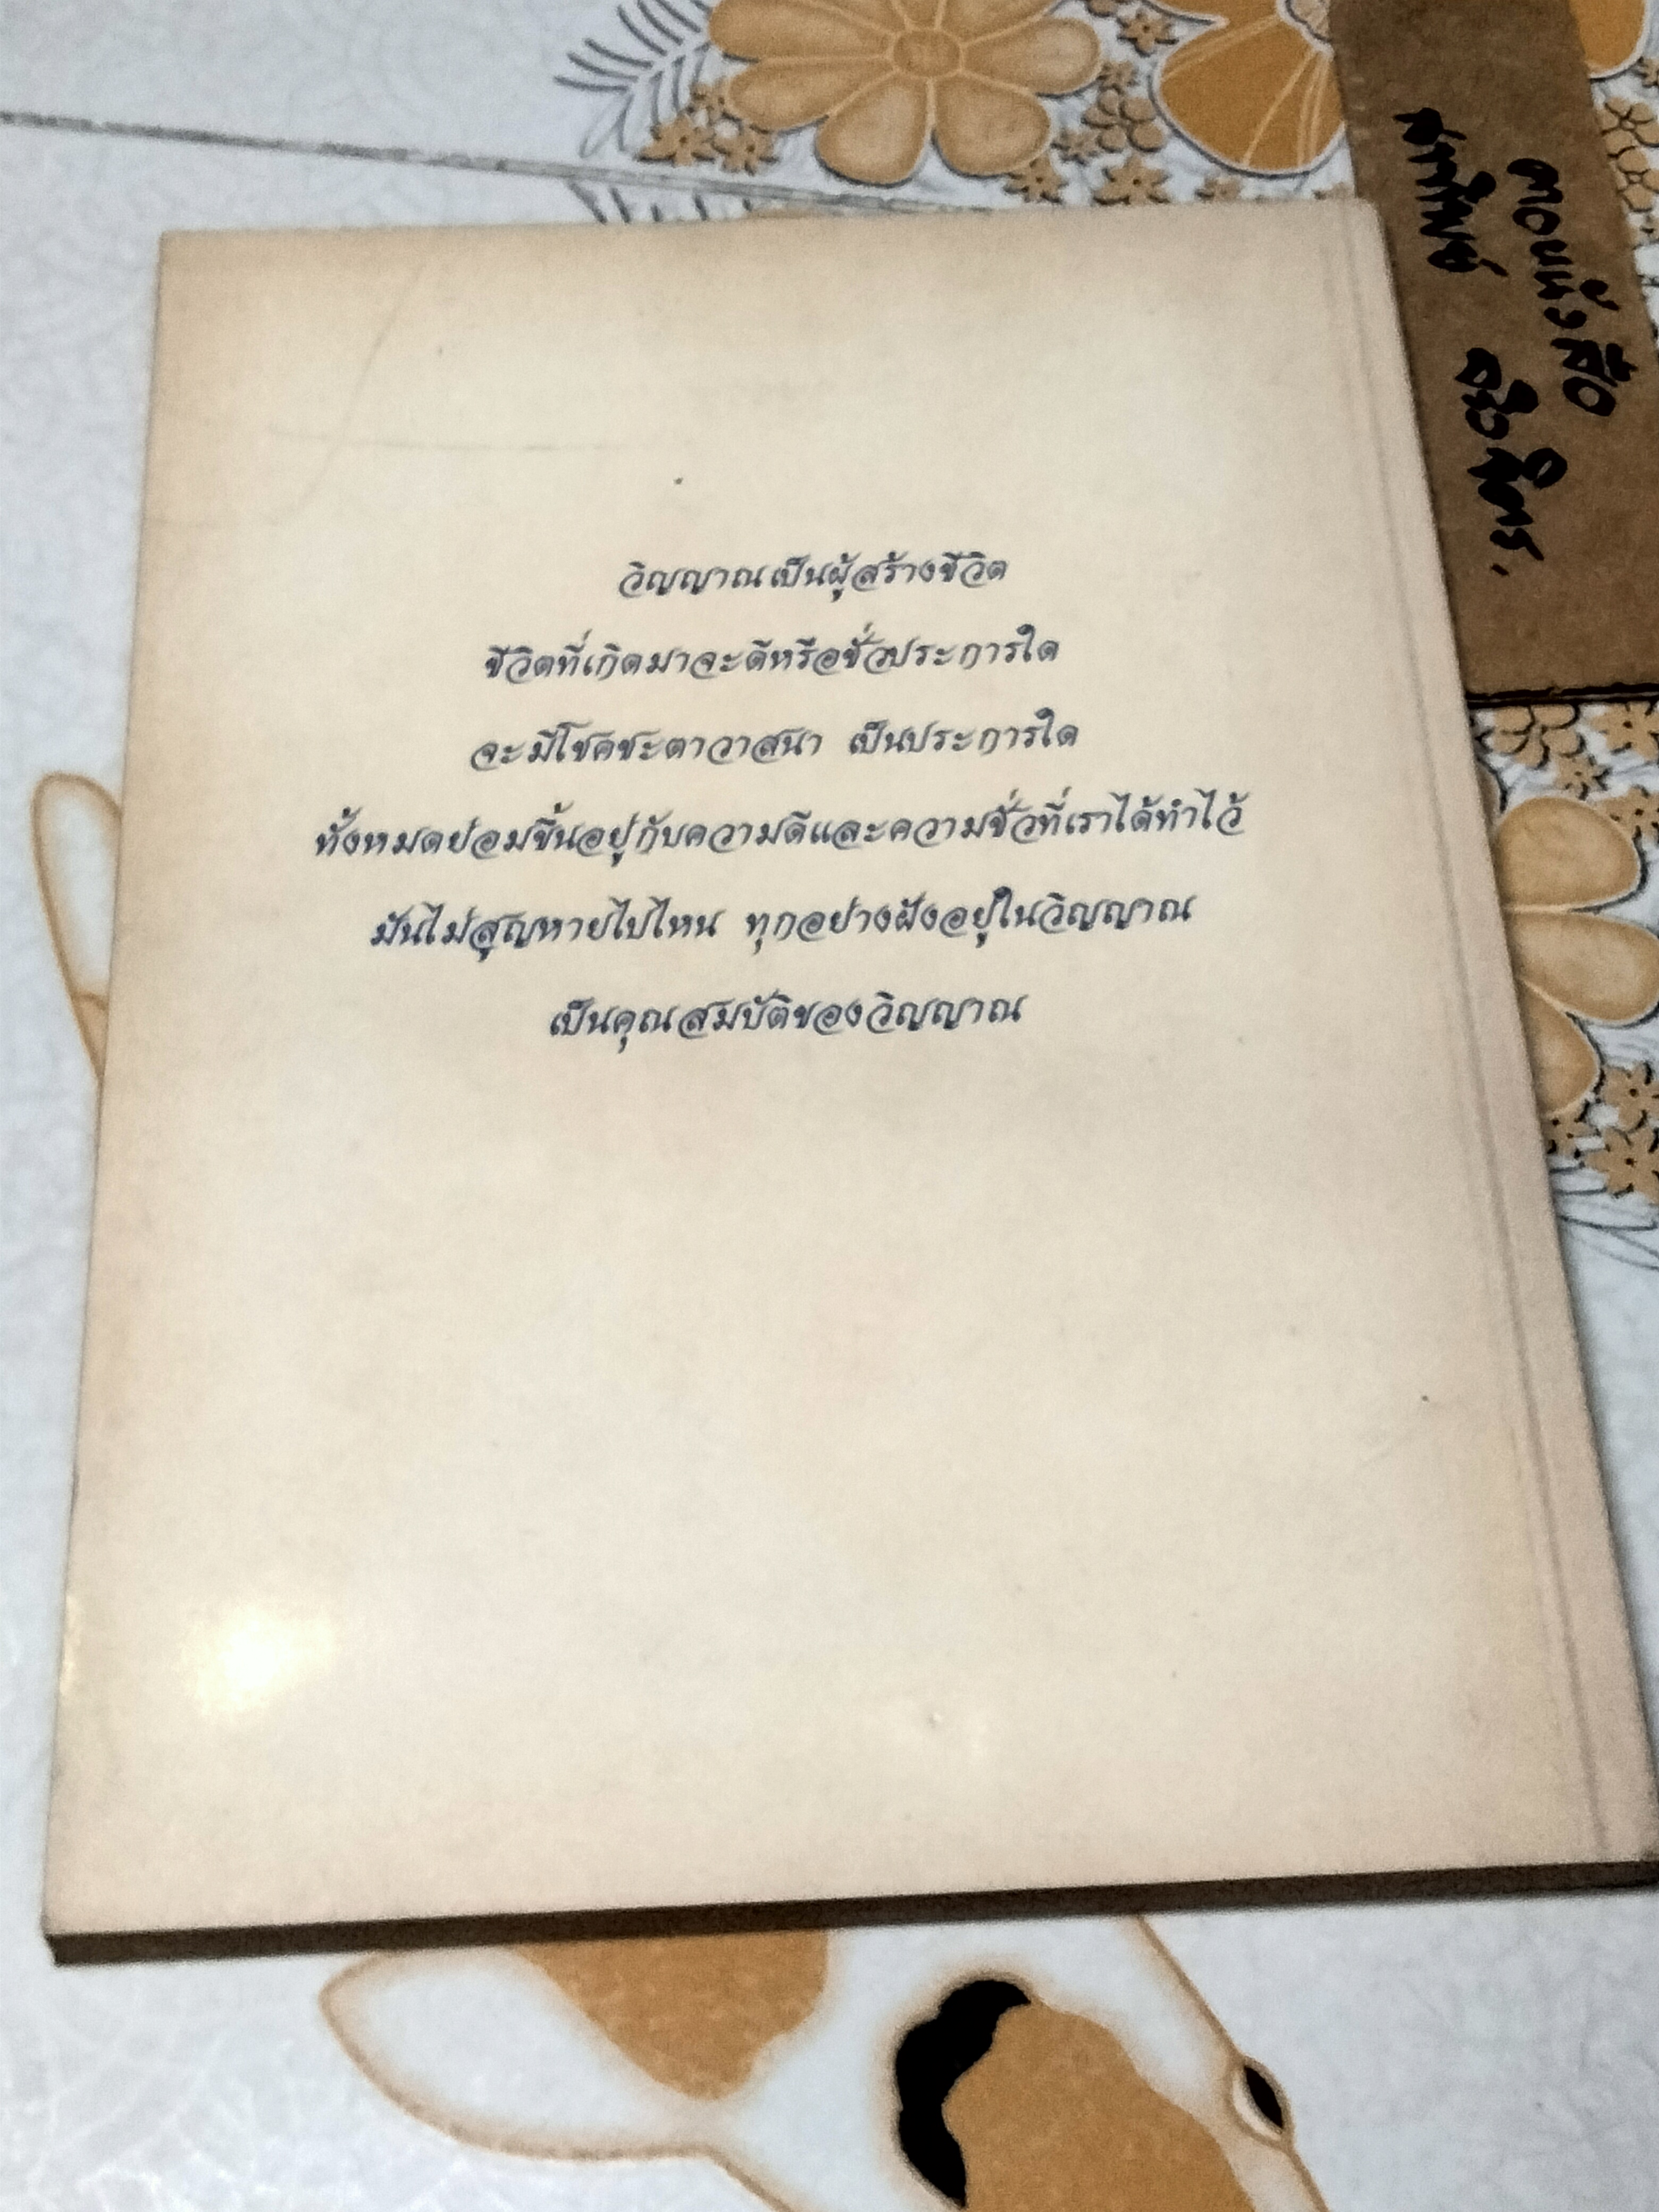 วิญญาณเป็นผู้สร้างชีวิต
ชีวิตที่เกิดมาจะดีหรือชั่วประการใด
จะมีโชคชะตาวาสนา เป็นประการใด
ทั้งหมดย่อมขึ้นอยู่กับความดีและความชั่วที่เราได้ทำไว้
มันไม่สูญหายไปไหน ทุกอย่างฝังอยู่ในวิญญาณ
เป็นคุณสมบัติของวิญญาณ